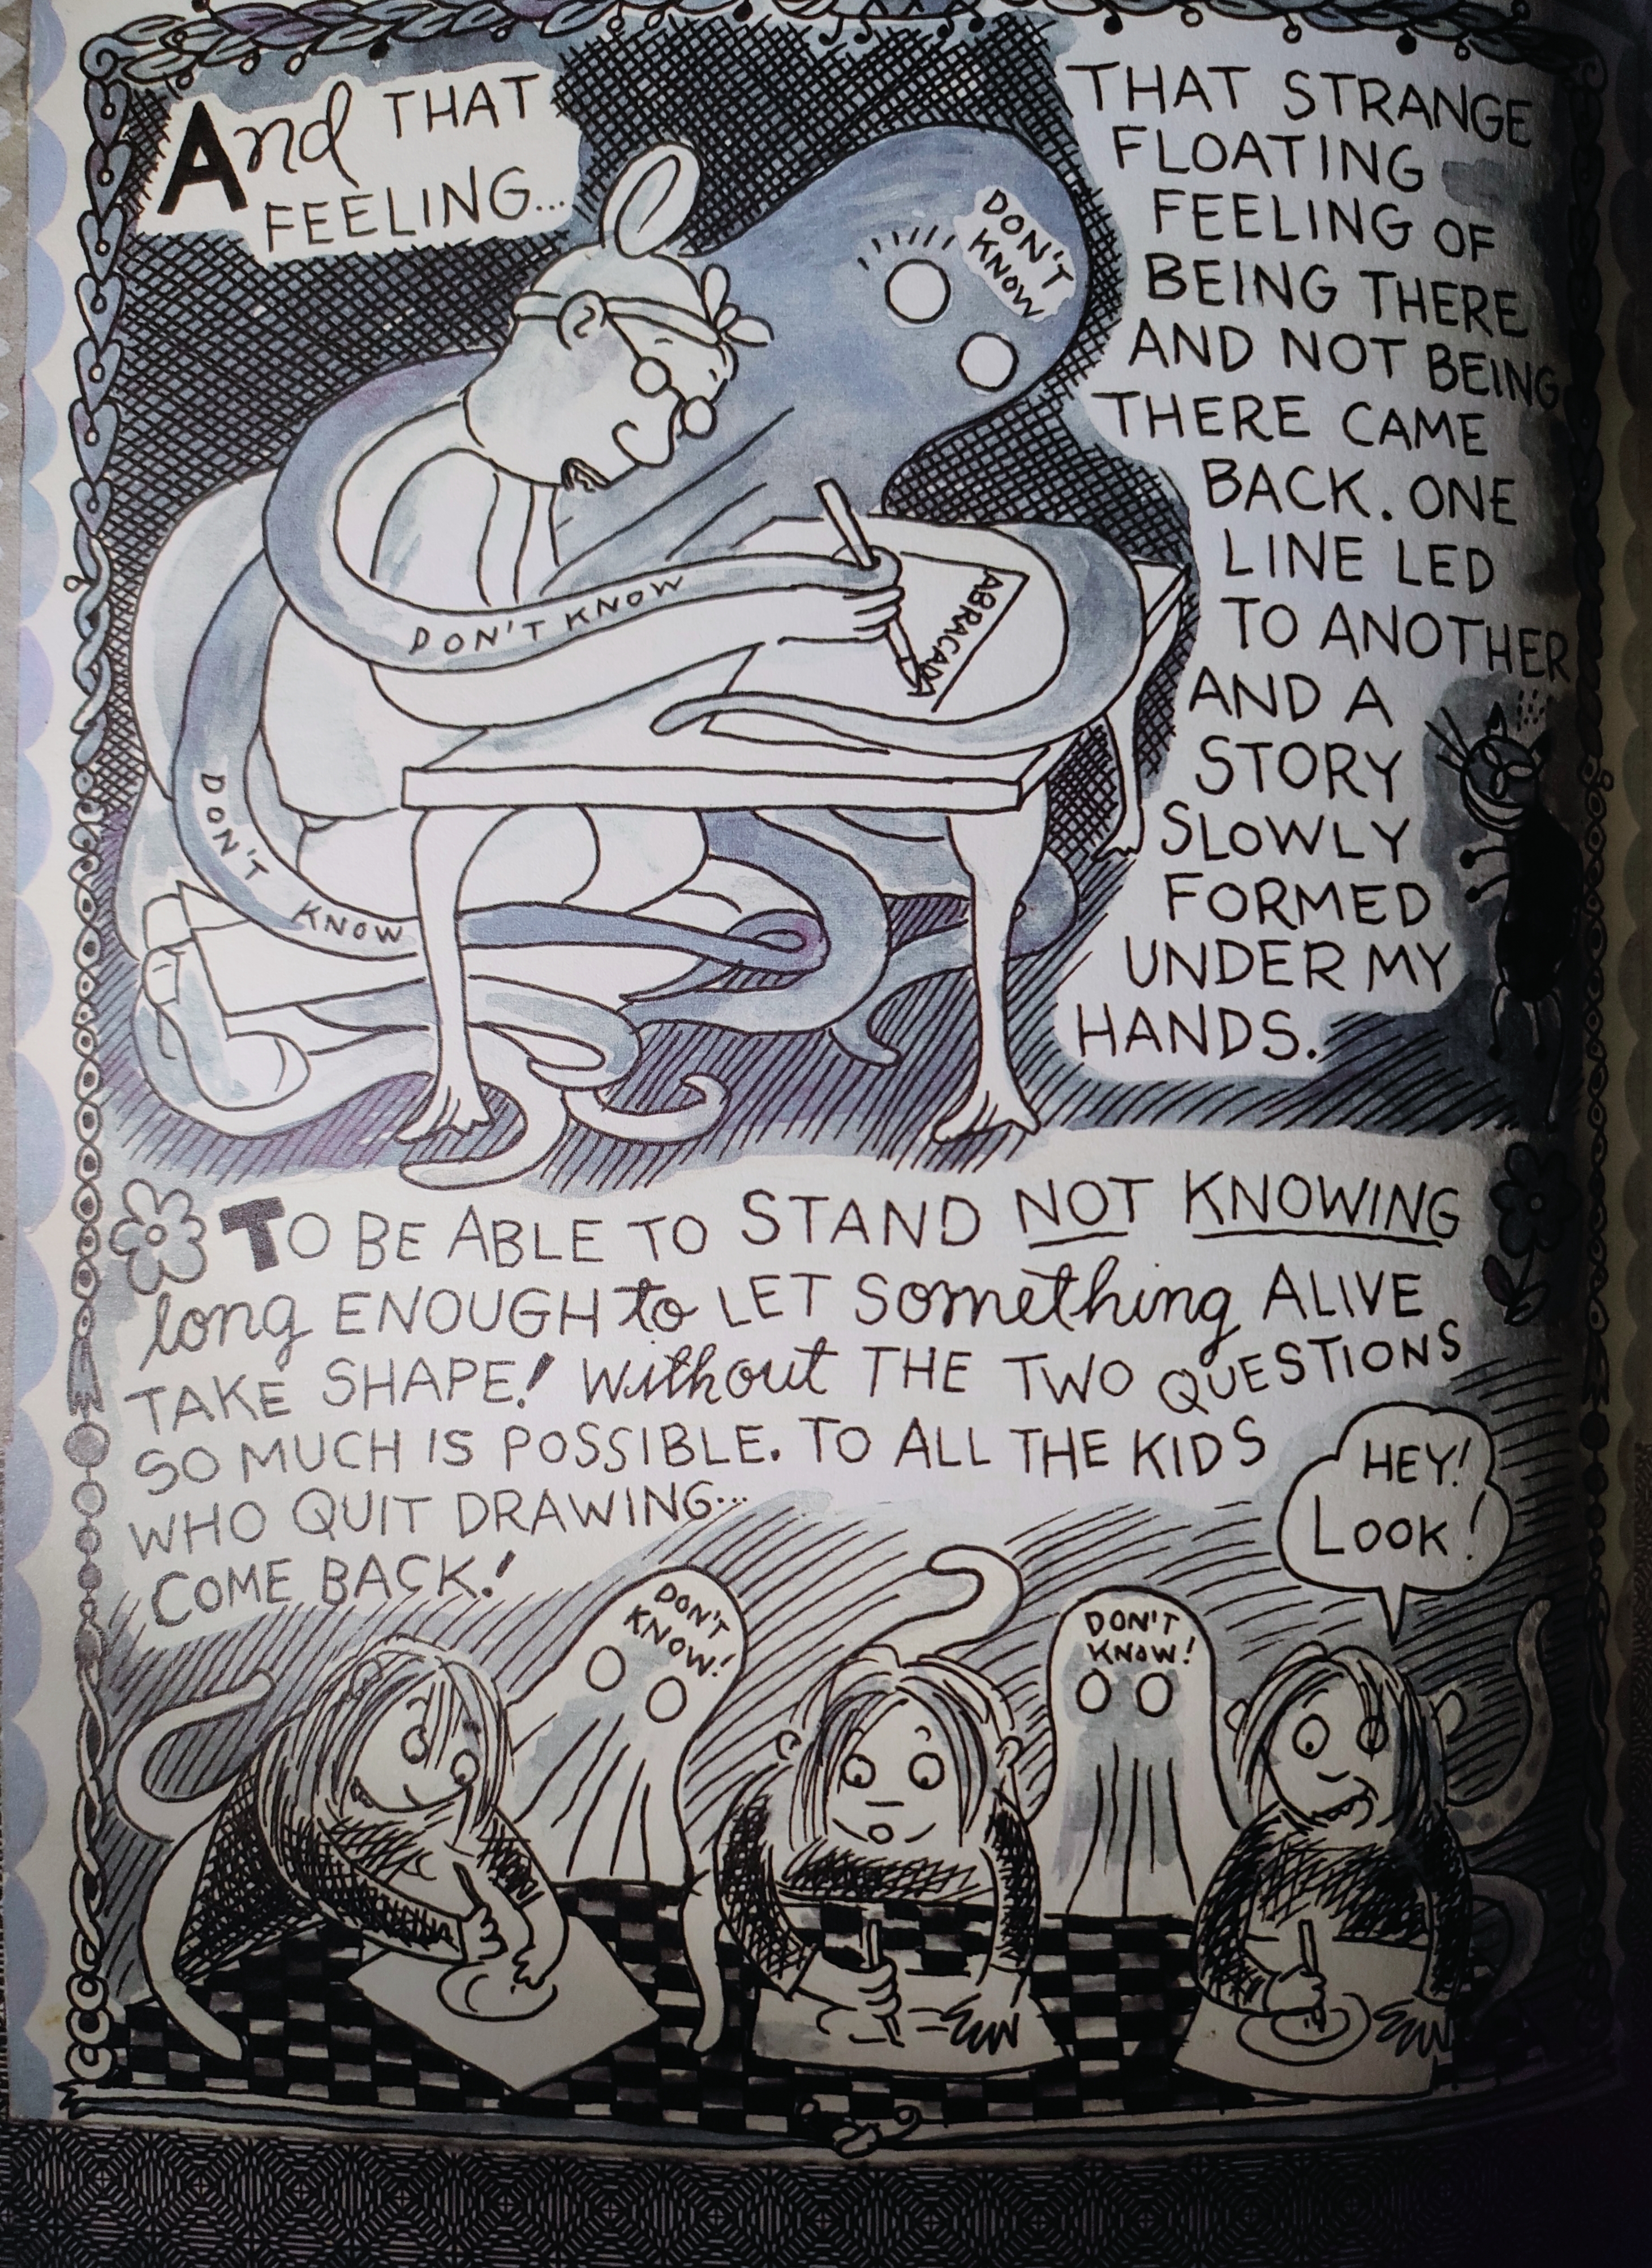 And THAT
FEELING...
DON'T
KNOW
THAT STRANGE
FLOATING
FEELING OF
BEING THERE
AND NOT BEING
THERE CAME
BACK. ONE
LINE LED
TO ANOTHER
AND A
STORY
SLOWLY
FORMED
UNDER MY
HANDS.
DON'T KNOW
ABRACADA
DON'T
KNOW
TO BE ABLE TO STAND NOT KNOWING
long ENOUGH to LET something ALIVE
TAKE SHAPE! Without THE TWO QUESTIONS
SO MUCH IS POSSIBLE. TO ALL THE KIDS
WHO QUIT DRAWING...
COME BACK!
HEY!
LOOK!
DON'T
KNOW!
DON'T
KNOW!